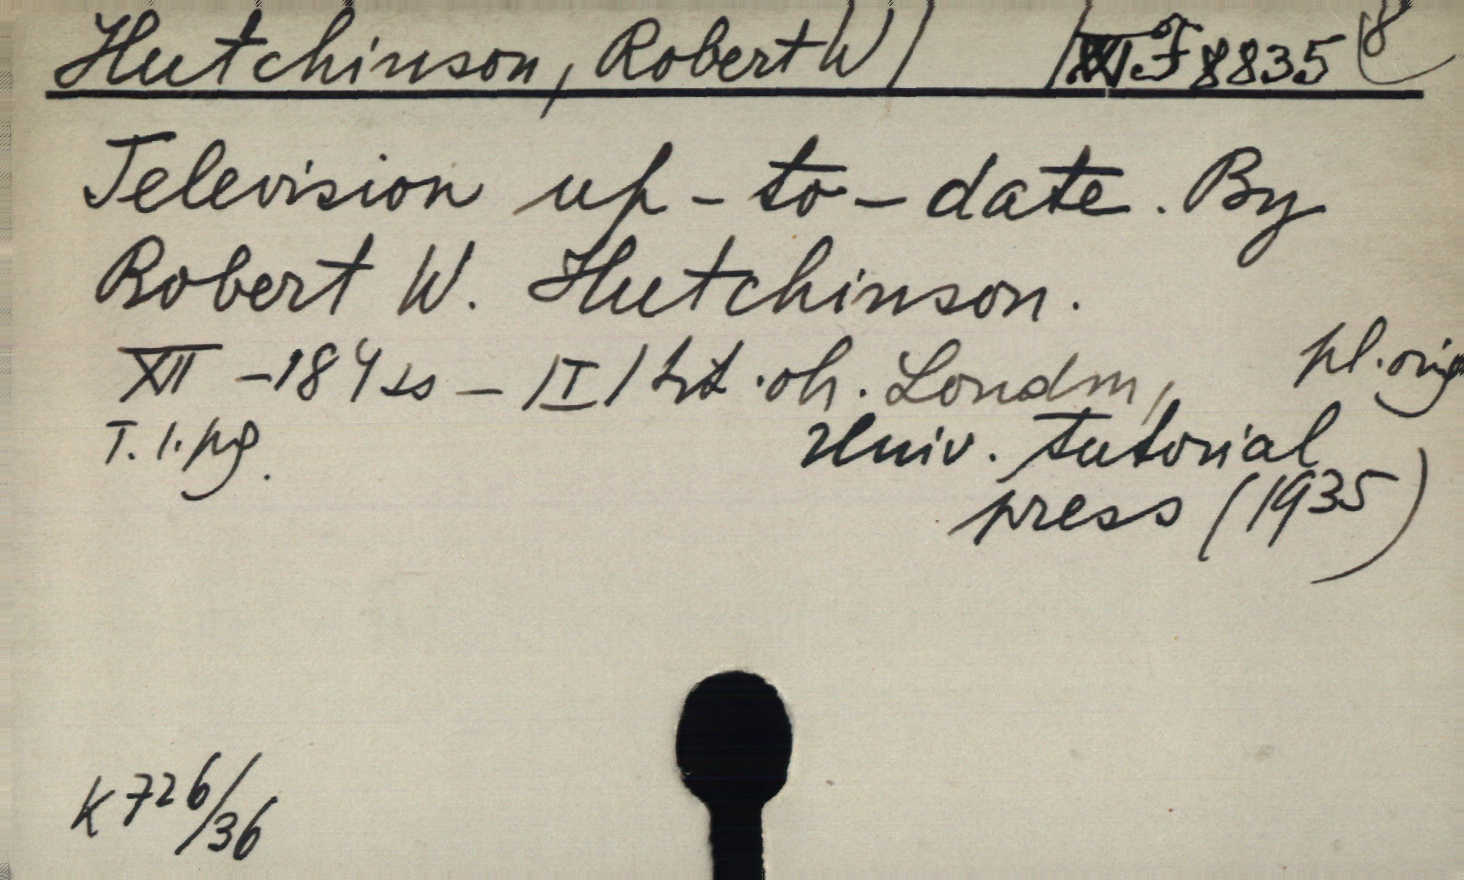 Hutchinson, Robert W/ /XI F 8835 8
Television up-to-date. By
Robert W. Hutchinson.
XII -184 ss - /I/ lrt. oh. London, pl. orig
T. 1. pg. Univ. tutorial
press (1935)
K 726/36